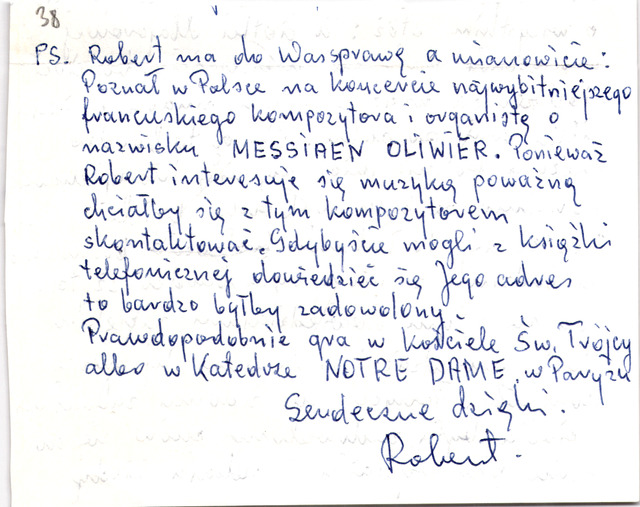 38
PS. Robert ma do Was sprawę a mianowicie:
Poznał w Polsce na koncercie najwybitniejszego
francuskiego kompozytora i organistę o
nazwisku MESSIAEN OLIWIER. Ponieważ
Robert interesuje się muzyką poważną
chciałby się z tym kompozytorem
skontaktować. Gdybyście mogli z książki
telefonicznej dowiedzieć się Jego adres
to bardzo byłby zadowolony.
Prawdopodobnie gra w kościele Św. Trójcy
albo w Katedrze NOTRE DAME w Paryżu
Serdeczne dzięki.
Robert.